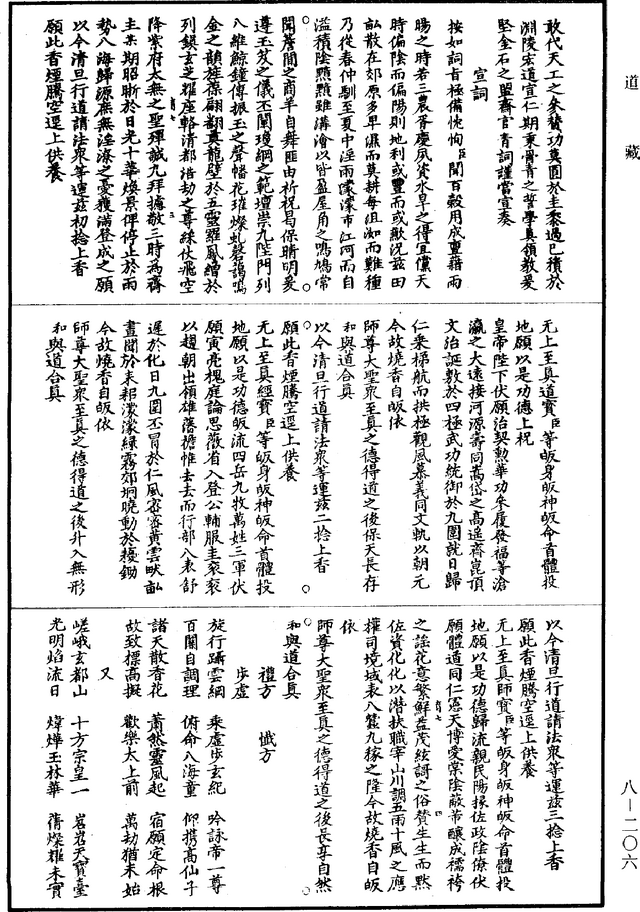 道藏
敢代天工之朱贊功奠圓於圭黍過已積於
淵陵宏道宣仁期乘骨青之誓學真領教爰
堅金石之盟齋言青詞謹當宣奏
宣詞
按如詞旨極備悃恂臣聞百穀用成豐藉雨
暘之時若三農胥慶夙資水旱之得宜儻天
時偏陰而偏陽則地利或豐而或歉況茲田
訟散在郊原多卑濕而莫耕每沮洳而難種
乃從春仲馴至夏中淫雨濛濛市江河而自
溢積陰黯黯雖溝澮以皆盈屋角之鳴鳩常
聞簷間之商羊自舞匪由祈祝曷保晴明爰
遵玉笈之儀丕闡瓊綱之範壇崇九陛門列
八維鯨鐘傳振玉之聲幡花璀燦虬磬謁鳴
金之韻旌葆翩翻冀龍璧於五靈羅鳳繒於
列鎮玄芝耀座輅清都浩劫之尊絲伏飛空
降紫府太無之聖殫誠九拜攄敬三時為齋
主某期昭晣於日光十華煥景俾停止於雨
勢八海歸源庶無淫潦之憂獲滿登成之願
以今清旦行道請法眾等運茲初捻上香
願此香煙騰空逕上供養
无上至真道寶臣等皈身皈神皈命首體投
地願以是功德上祝
皇帝陛下伏願治契勲華功牟履發福等滄
瀛之大遠接河源壽同嵩岱之高遙齊崑頂
文治誕敷於四極武功統御於九圍就日歸
仁乘梯航而拱極觀風慕義同文軌以朝元
今故燒香自皈依
師尊大聖眾至真之德得道之後保天長存
和與道合真
以今清旦行道請法眾等運茲二捻上香
願此香煙騰空逕上供養
无上至真經寶臣等皈身皈神皈命首體投
地願以是功德皈流四岳九牧萬姓三軍伏
願寅亮槐庭論思薇省入登公輔服圭袞袞
以趨朝出領雄藩襜帷去去而行部八表舒
遲於化日九圍丕冒於仁風密密黃雲畎畝
晝閒於耒耜濛濛綠霧郊坰曉動於耰鋤
今故燒香自皈依
師尊大聖眾至真之德得道之後升入無形
和與道合真
以今清旦行道請法眾等運茲三捻上香
願此香煙騰空逕上供養
无上至真師寶臣等皈身皈神皈命首體投
地願以是功德歸流親民陽掾佐政陰僚伏
願體造同仁憲天博愛棠陰蔽芾釀成襦袴
之謠花意繁鮮益茂絃謌之俗贊生生而默
佐資化化以潛扶職宰山川調五雨十風之應
權司境域表八簋九稼之隆今故燒香自皈
依
師尊大聖眾至真之德得道之後長享自然
和與道合真
禮方 懺方
步虛
旋行躡雲綱 乘虛步玄紀 吟詠帝一尊
百關自調理 俯命八海童 仰携高仙子
諸天散香花 蕭然靈風起 宿願定命根
故致標高擬 歡樂太上前 萬劫猶未始
又
嵯峨玄都山 十方宗皇一 岧岧天寶臺
光明焰流日 煒燁玉林華 蒨燦耀朱實
八—二〇六